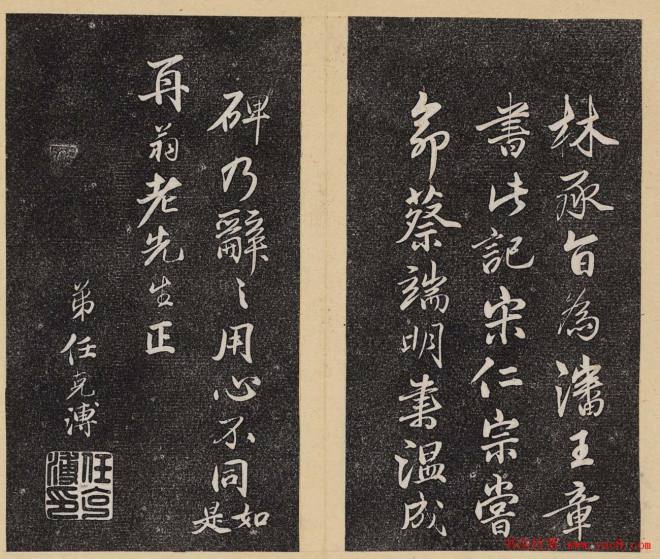 林承旨為瀋王章
書此記宋仁宗嘗
命蔡端明書温成
碑乃辭〻用心不同如是
再翁老先生正
弟任克溥
任克溥印